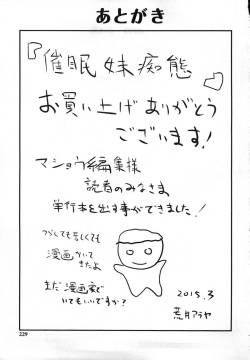 あとがき
『催眠妹痴態』
お買い上げありがとう
ございます!
マショウ編集様
読者のみなさま
単行本を出す事ができました!
つらくても苦しくても
漫画かいて
きたよ
まだ漫画家で
いてもいいですか?
2015.3
荒月アラヤ
229